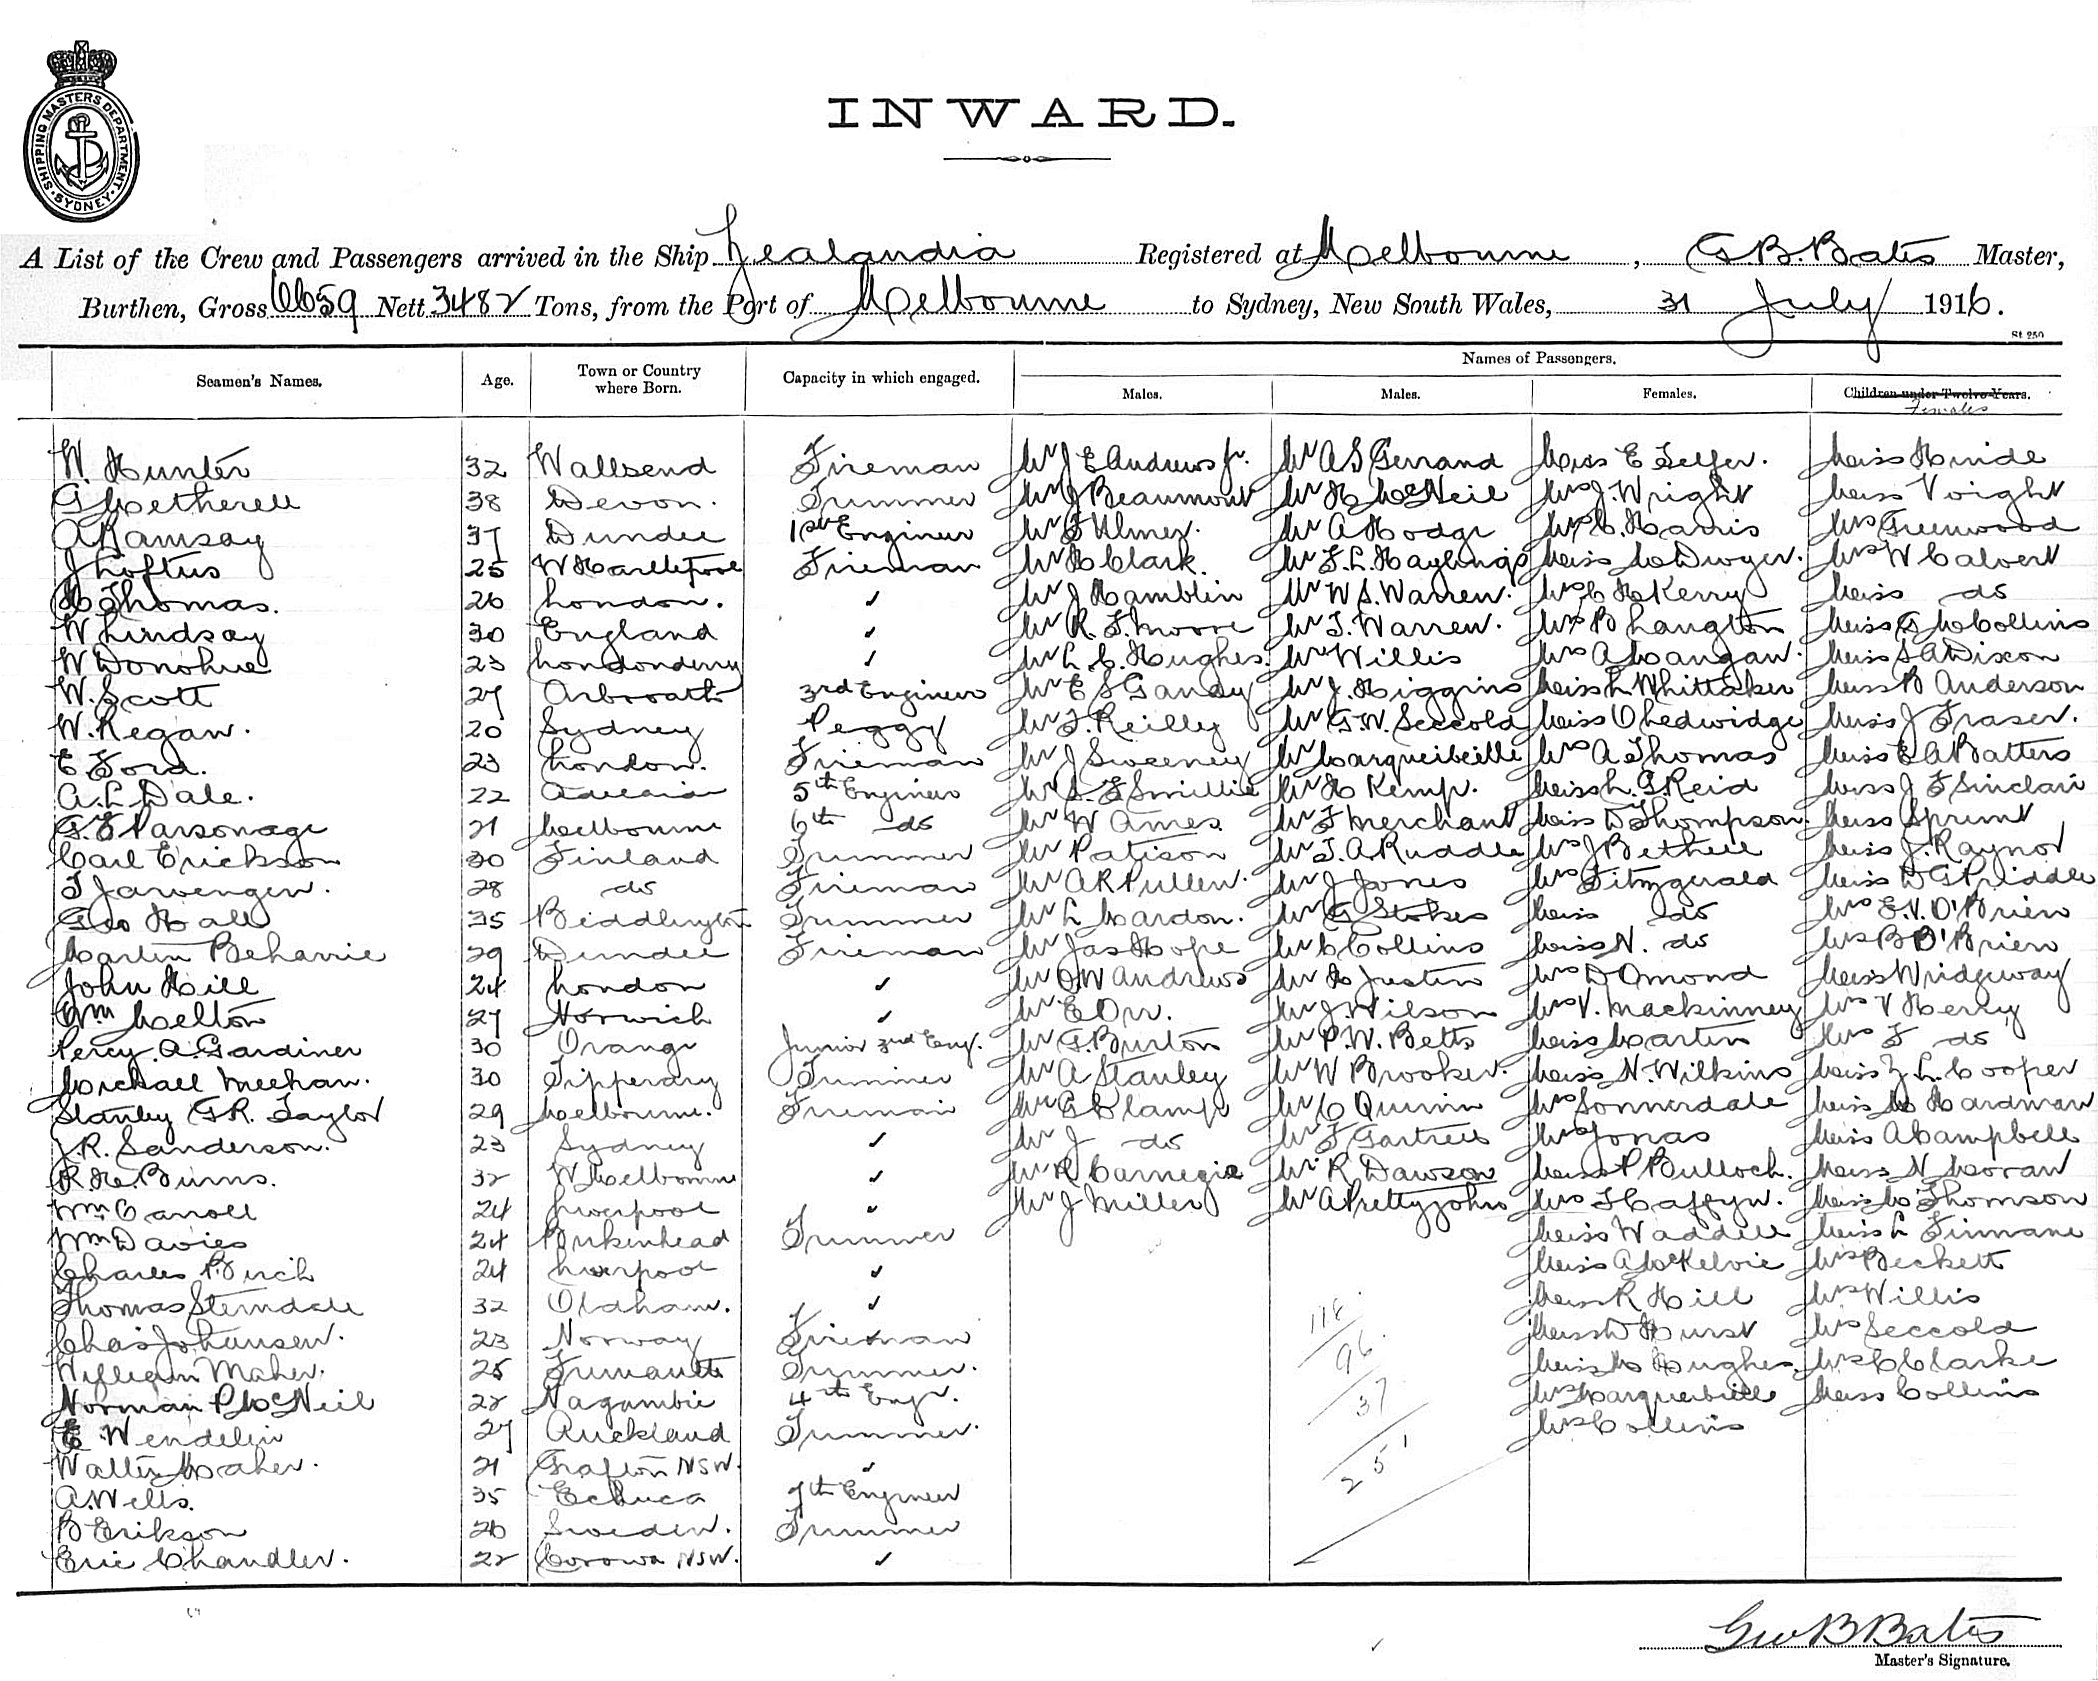 SHIPPING MASTERS DEPARTMENT. SYDNEY
INWARD.
A List of the Crew and Passengers arrived in the Ship Zealandia Registered at Melbourne, G B. Bates Master,
Burthen, Gross 6659 Nett 3482 Tons, from the Port of Melbourne to Sydney, New South Wales, 31 July 1916.
St 250
Names of Passengers.
Seamen's Names. Age. Town or Country where Born. Capacity in which engaged. Males. Males. Females. Children under Twelve Years.
Females
W. Hunter 32 Wallsend Fireman Mr J E Andrews Jr. Mr A S Gerrand Miss E Telfer. Miss Hinde
G Metherell 38 Devon. Trimmer Mr J Beaumont Mr H McNeil Mrs J. Wright Miss Voight
A Ramsay 37 Dundee 1st Engineer Mr F Ulmer. Mr A Hodge Mrs C. Harris Mrs Greenwood
J Loftus 25 W Hartlepool Fireman Mr H Clark. Mr F. L. Haylings Miss M Dwyer. Mrs W Calvert
H Thomas. 26 London. ✓ Mr J Hamblin Mr W S. Warren. Mrs C H Kerry Miss do
W Lindsay 30 England ✓ Mr R. F. Moore Mr T. Warren. Mrs B Langton Miss G M Collins
W Donohue 23 Londonderry ✓ Mr L. C. Hughes. Mr Willis Mrs A Mangan. Miss S A Dixon
W. Scott 27 Arbroath 3rd Engineer Mr E S Gandy Mr J. Higgins Miss L Whittaker Miss B Anderson
W. Regan. 20 Sydney Peggy Mr T. Reilly Mr G. W. Seccold Miss O Ledwidge Miss J Fraser.
E Ford. 23 London. Fireman Mr J Sweeney Mr Marqueibeille Mrs A Thomas Miss E A Batters
A. L Dale. 22 Adelaide 5th Engineer Mr S. F Smillie Mr H Kemp. Miss L. G Reid Miss J F Sinclair
G. F Parsonage 21 Melbourne 6th do Mr W Ames Mr F Merchant Miss D Thompson. Miss Sprunt
Carl Erickson 30 Finland Trimmer Mr Patison Mr T. A. Ruddle Mrs J Bethell Miss J. Raynor
T Jarvengen. 28 do Fireman Mr A R Pullen. Mr J Jones Mrs Fitzgerald Miss D G Priddle
Geo Hall 35 Biddlington Trimmer Mr L Cardon. Mr G Stokes Miss do Mrs E. V. O'Brien
Martin Beharrie 29 Dundee Fireman Mr Jas Hope Mr C Collins Miss N. do Mrs B O'Brien
John Hill 24 London ✓ Mr O W Andrews Mr H Justin Mrs D Omond Miss Wridgeway
Wm Melton 27 Norwich ✓ Mr E Orr. Mr J. Wilson Mrs V. Mackinney Mrs V Herly
Percy. A. Gardiner 30 Orange Junior 3rd Eng. Mr G. Burton Mr P. W. Betts Miss Martin Mrs F do
Michael Meehan. 30 Tipperary Trimmer Mr A Stanley Mr W Brooker. Miss N. Wilkins Miss Z. L. Cooper
Stanley G R. Taylor 29 Melbourne. Fireman Mr G Clamp Mr C Quinn Mrs Sonnerdale Miss M Hardman
J. R. Sanderson. 23 Sydney ✓ Mr J do Mr F Gartrell Mrs Jonas Miss A Campbell
R. H. Burns. 32 W Melbourne ✓ Mr R Carnegie Mr R Dawson Miss P Bulloch. Miss N Moran
Wm Caroll 24 Liverpool ✓ Mr J Miller Mr A Prettyjohn Mrs T Caffyn. Miss M Thomson
Wm Davies 24 Birkenhead Trimmer Miss Waddell Miss L Finnane
Charles Birch 24 Liverpool ✓ Miss A McKelvie Mrs Beckett
Thomas Sterndale 32 Oldham. ✓ Miss R Hill Mrs Willis
Chas Johansen. 23 Norway Fireman Miss D Hurst Mrs Seccold
William Maher. 25 Fremantle Trimmer. Miss M Hughes Mrs C Clarke
Norman P McNeil 22 Nagambie 4th Engr. Mrs Marqueibeille Miss Collins
E Wendelin 27 Auckland Trimmer. Mrs Collins
Walter Maher. 21 Grafton NSW. ✓
A. Wells. 35 Echuca 7th Engineer
B Erikson 26 Sweden. Trimmer
Eric Chandler. 22 Corowa NSW. ✓
118
96
37
251
Geo B Bates
Master's Signature.